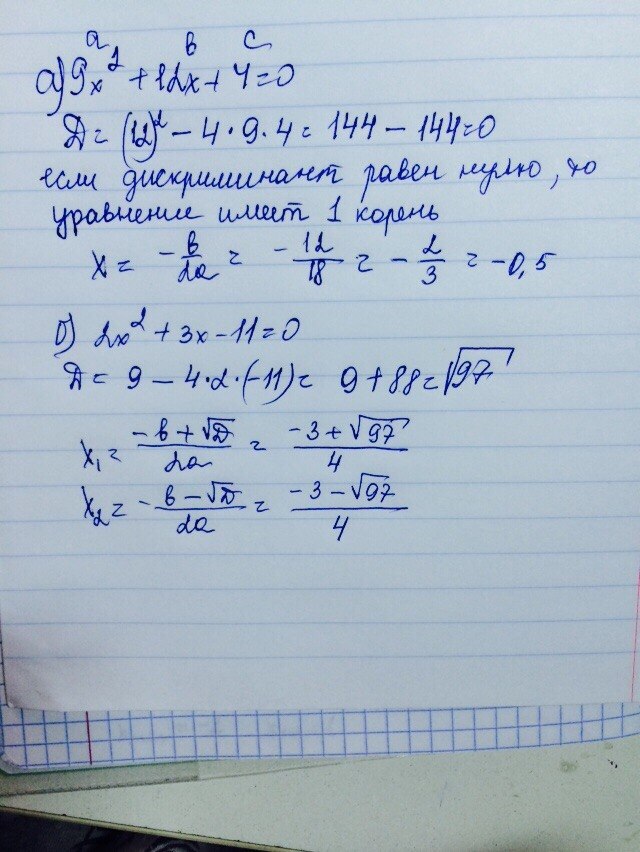 a в c
а) 9x² + 12x + 4 = 0
Д = (12)² − 4 · 9 · 4 = 144 − 144 = 0
если дискриминант равен нулю, то
уравнение имеет 1 корень
x = −в/2a = −12/18 = −2/3 = −0,5
б) 2x² + 3x − 11 = 0
Д = 9 − 4·2·(−11) = 9 + 88 = √97
x₁ = (−в + √Д)/2a = (−3 + √97)/4
x₂ = −(в − √Д)/2a = (−3 − √97)/4